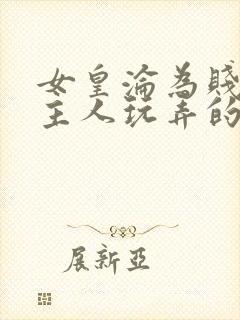 女皇淪為賤
主人玩弄的
展新亞